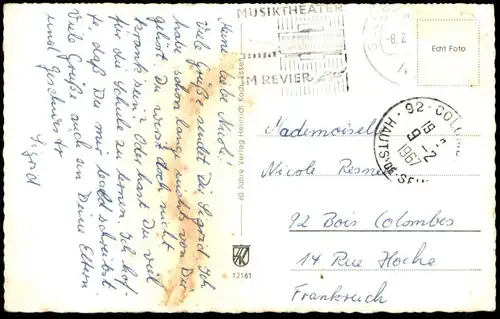 Meine liebe Nicol!
Viele Grüße sendet Dir Sigrid. Ich
habe schon lange nichts von Dir
gehört. Du wirst doch nicht
krank sein? Oder hast Du viel
für die Schule zu lernen. Ich hof-
fe, daß Du mir bald schreibst.
Viele Grüße auch an Deine Eltern
und Geschwister
Sigrid
MUSIKTHEATER
IM REVIER
-8.2
Echt Foto
92-COLOM
19 H
9-2
1967
HAUTS-DE-SEINE
Mademoiselle
Nicole
92 Bois Colombes
14 Rue Hoche
Frankreich
12161